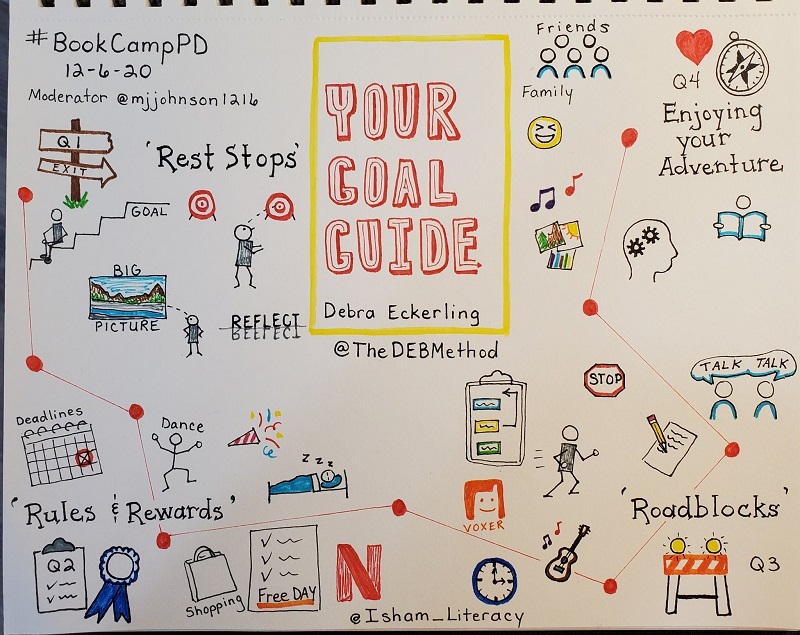 #BookCampPD
12-6-20
Moderator @mjjohnson1216
Q1
EXIT
'Rest Stops'
GOAL
BIG
PICTURE
REFLECT
REFLECT
YOUR
GOAL
GUIDE
Debra Eckerling
@TheDEBMethod
Friends
Family
Q4
Enjoying
your
Adventure
STOP
TALK TALK
Deadlines
Dance
z z z
'Rules & Rewards'
Q2
Shopping
Free DAY
N
VOXER
'Roadblocks'
Q3
@Isham_Literacy